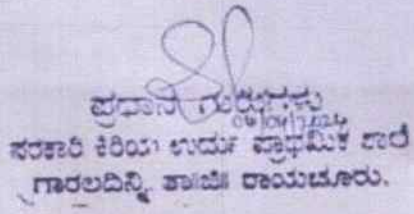 ಪ್ರಧಾನ ಗುರುಗಳು
ಸರಕಾರಿ ಕಿರಿಯ ಉರ್ದು ಪ್ರಾಥಮಿಕ ಶಾಲೆ
ಗಾರಲದಿನ್ನಿ ತಾ॥ಜಿ॥ ರಾಯಚೂರು.